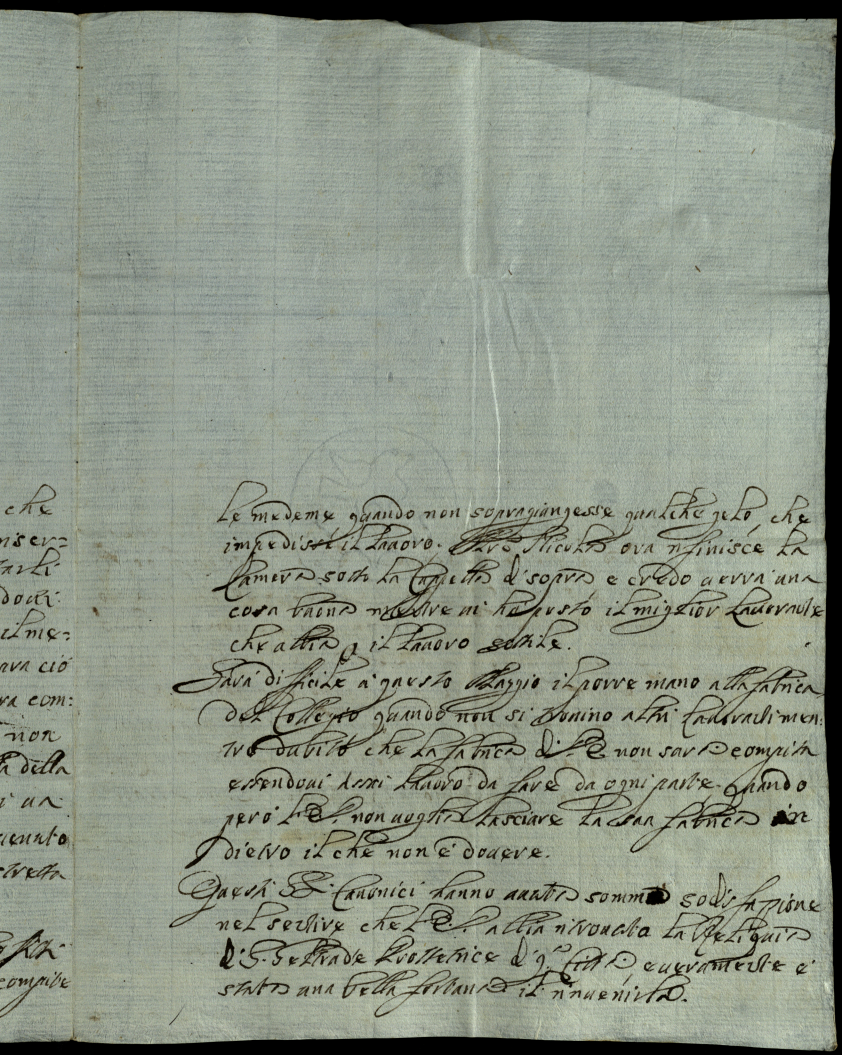 che
nser=
farli
dovi
il me=
ara ciò
ra com:
non
la della
i un
venuto
stretta
compite
le medeme quando non sopragiungesse qualche gelo, che
impedisse il lavoro. Nicola ora rifinisce la
Camera sotto la Cappella di sopra e credo averrà una
cosa buona mentre vi ha posto il miglior lavorante
che abbia p il lavoro sottile.
Sarà difficile a questo Maggio il porre mano alla fabrica
del Collegio quando non si trovino altri lavoranti men:
tre dubito che la fabrica di non sarà compita
essendovi assai lavoro da fare da ogni parte. Quando
però non voglia lasciare la sua fabrica in
dietro il che non è dovere.
Questi SS.i Canonici hanno avuta somma sodisfazione
nel sentire che abbia ritrovata la Reliquia
di S. Geltrude Protettrice di q.ta Città, e veramente è
stata una bella fortuna il rinvenirla.